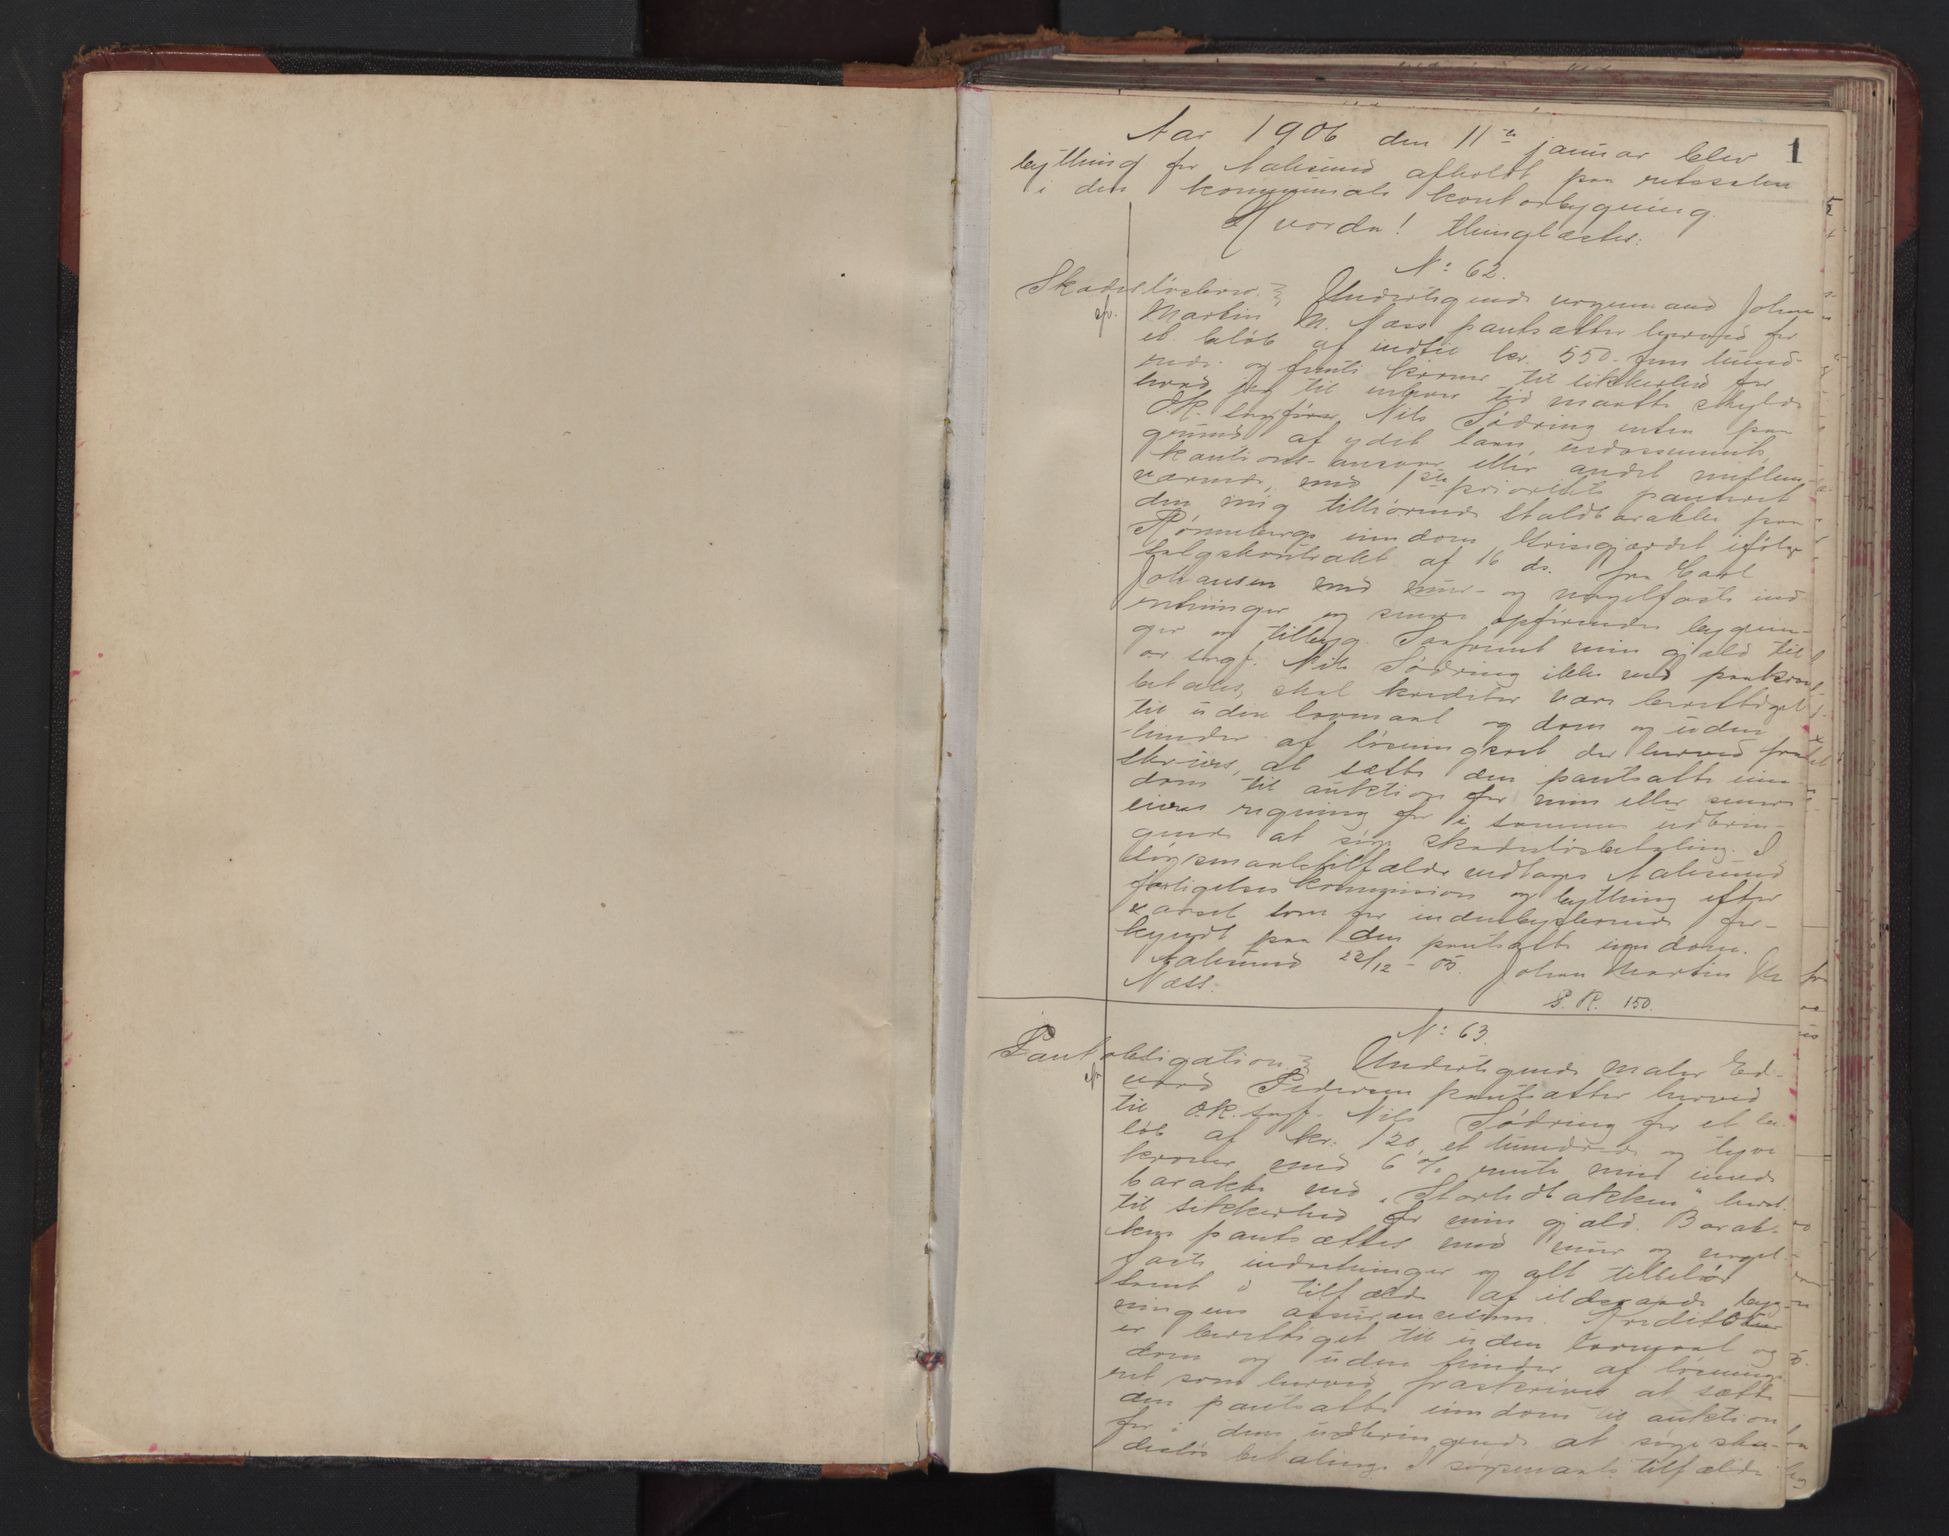 1
Aar 1906 den 11te januar blev
bything for Aalesund afholdt paa retssalen
i den kommunale kontorbygning.
Hvorda! thinglæstes:
No 62.
Skadesløsbrev. Undertegnede vognmand Johan
Martin M. Næss pantsætter herved for
et beløb af indtil kr. 550 - fem hund-
rede og femti kroner til sikkerhed for
hvad jeg til enhver tid maatte skylde
O.R. sagfører Nils Sødring enten paa
grund af ydet laan, endossement,
kautions-ansvar eller andet mellem-
værende, med 1ste prioritets panteret
den mig tilhørende staldbarakke paa
Rønnebergs eiendom Grisgjærdet ifølge
salgskontrakt af 16 ds. fra Carl
Johansen med mur- og nagelfaste ind-
retninger og senere opførende bygnin-
ger og tilbyg. Saafremt min gjæld til
or. sagf. Nils Sødring ikke ved paakrav
betales, skal kreditor være berettiget
til uden lovmaal og dom og uden
hinder af løsningsret der herved fra-
skrives, at sætte den pantsatte eien-
dom til auktion for min eller senere
eieres regning for i sammes udbrin-
gende at søge skadesløsbetaling. I
søgsmaalstilfælde vedtages Aalesund
forligelseskommission og bything efter
varsel som for indenbysboende for-
kyndt paa den pantsatte eiendom.
Aalesund 22/12 - 05. Johan Martin M
Næss.
S. R. 150.
No 63.
Pantobligation Undertegnede maler Ed-
vard Pedersen pantsætter herved
til O.R. sagf. Nils Sødring for et be-
løb af kr. 120, et hundrede og tyve
kroner med 6 % rente mind
barakke ved "Storhidbakken"
til sikkerhed for min gjæld. Barak-
ken pantsættes med mur og nagel-
faste indretninger og alt tilbehør
samt i tilfælde af ildsvaade byg-
ningens assurancesum. Kreditor
er berettiget til uden lovmaal og
dom og uden hinder af løsnings-
ret som herved fraskrives at sætte
den pantsatte eiendom til auktion
for i dens udbringende at søge ska-
desløs betaling. I søgsmaals tilfælde